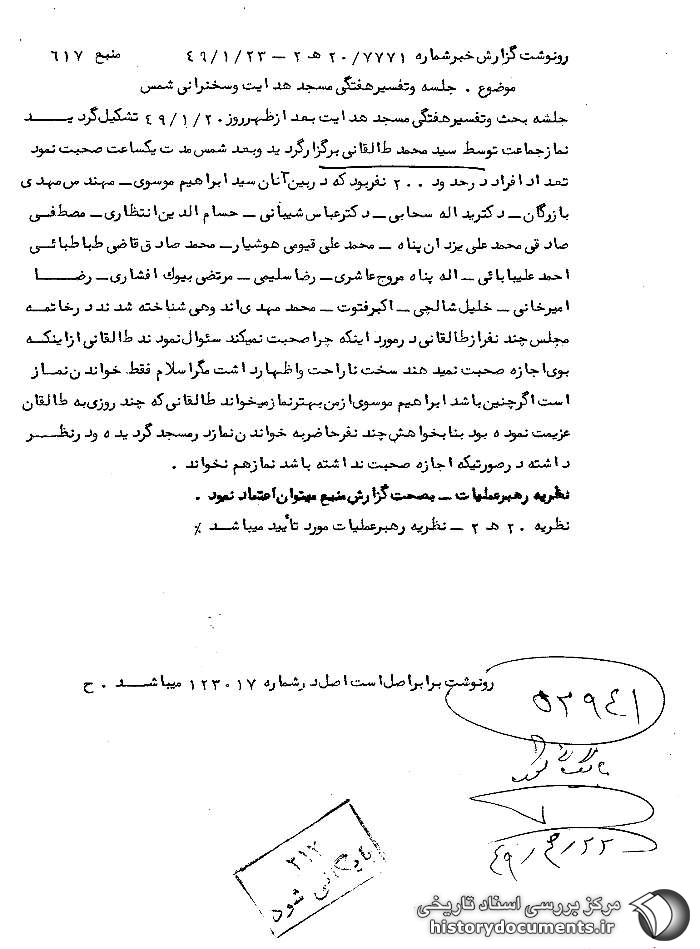 رونوشت گزارش خبر شماره ۲۰/۷۷۷۱ هـ ۲ – ۴۹/۱/۲۳ منبع ۶۱۷
موضوع . جلسه وتفسیرهفتگی مسجد هدایت وسخنرانی شمس
جلشه بحث وتفسیرهفتگی مسجد هدایت بعد ازظهرروز ۴۹/۱/۲۰ تشکیل گردید
نمازجماعت توسط سید محمد طالقانی برگزارگردید وبعد شمس مدت یکساعت صحبت نمود
تعداد افراد درحدود ۲۰۰ نفربود که دربین آنان سید ابراهیم موسوی – مهندس مهدی
بازرگان – دکترید اله سحابی – دکترعباس شیبانی – حسام الدین انتظاری – مصطفی
صادقی محمد علی یزدان پناه – محمد علی قیومی هوشیار – محمد صادق قاضی طباطبائی
احمد علیبابائی – اله پناه مروج عاشری – رضا سلیمی – مرتضی بیوك افشاری – رضا
امیرخانی – خلیل شالچی – اکبرفتوت – محمد مهدی اند وهی شناخته شدند درخاتمه
مجلس چند نفرازطالقانی درمورد اینکه چرا صحبت نمیکند سئوال نمودند طالقانی ازاینکه
بوی اجازه صحبت نمیدهند سخت ناراحت واظهارداشت مگراسلام فقط خواندن نماز
است اگرچنین باشد ابراهیم موسوی ازمن بهترنمازمیخواند طالقانی که چند روزی به طالقان
عزیمت نموده بود بنابخواهش چند نفرحاضربه خواندن نمازد رمسجد گردیده ودرنظر
داشته درصورتیکه اجازه صحبت نداشته باشد نمازهم نخواند .
نظریه رهبرعملیات – بصحت گزارش منبع میتوان اعتماد نمود .
نظریه ۲۰ هـ ۲ – نظریه رهبرعملیات مورد تأیید میباشد ٪
رونوشت برابراصل است اصل در شماره ۱۲۳۰۱۷ میباشد . ح
۵۳۹۴۱
۴۹/۲/۲۲
۳۱۲
بایگانی شود
مرکز بررسی اسناد تاریخی
historydocuments.ir